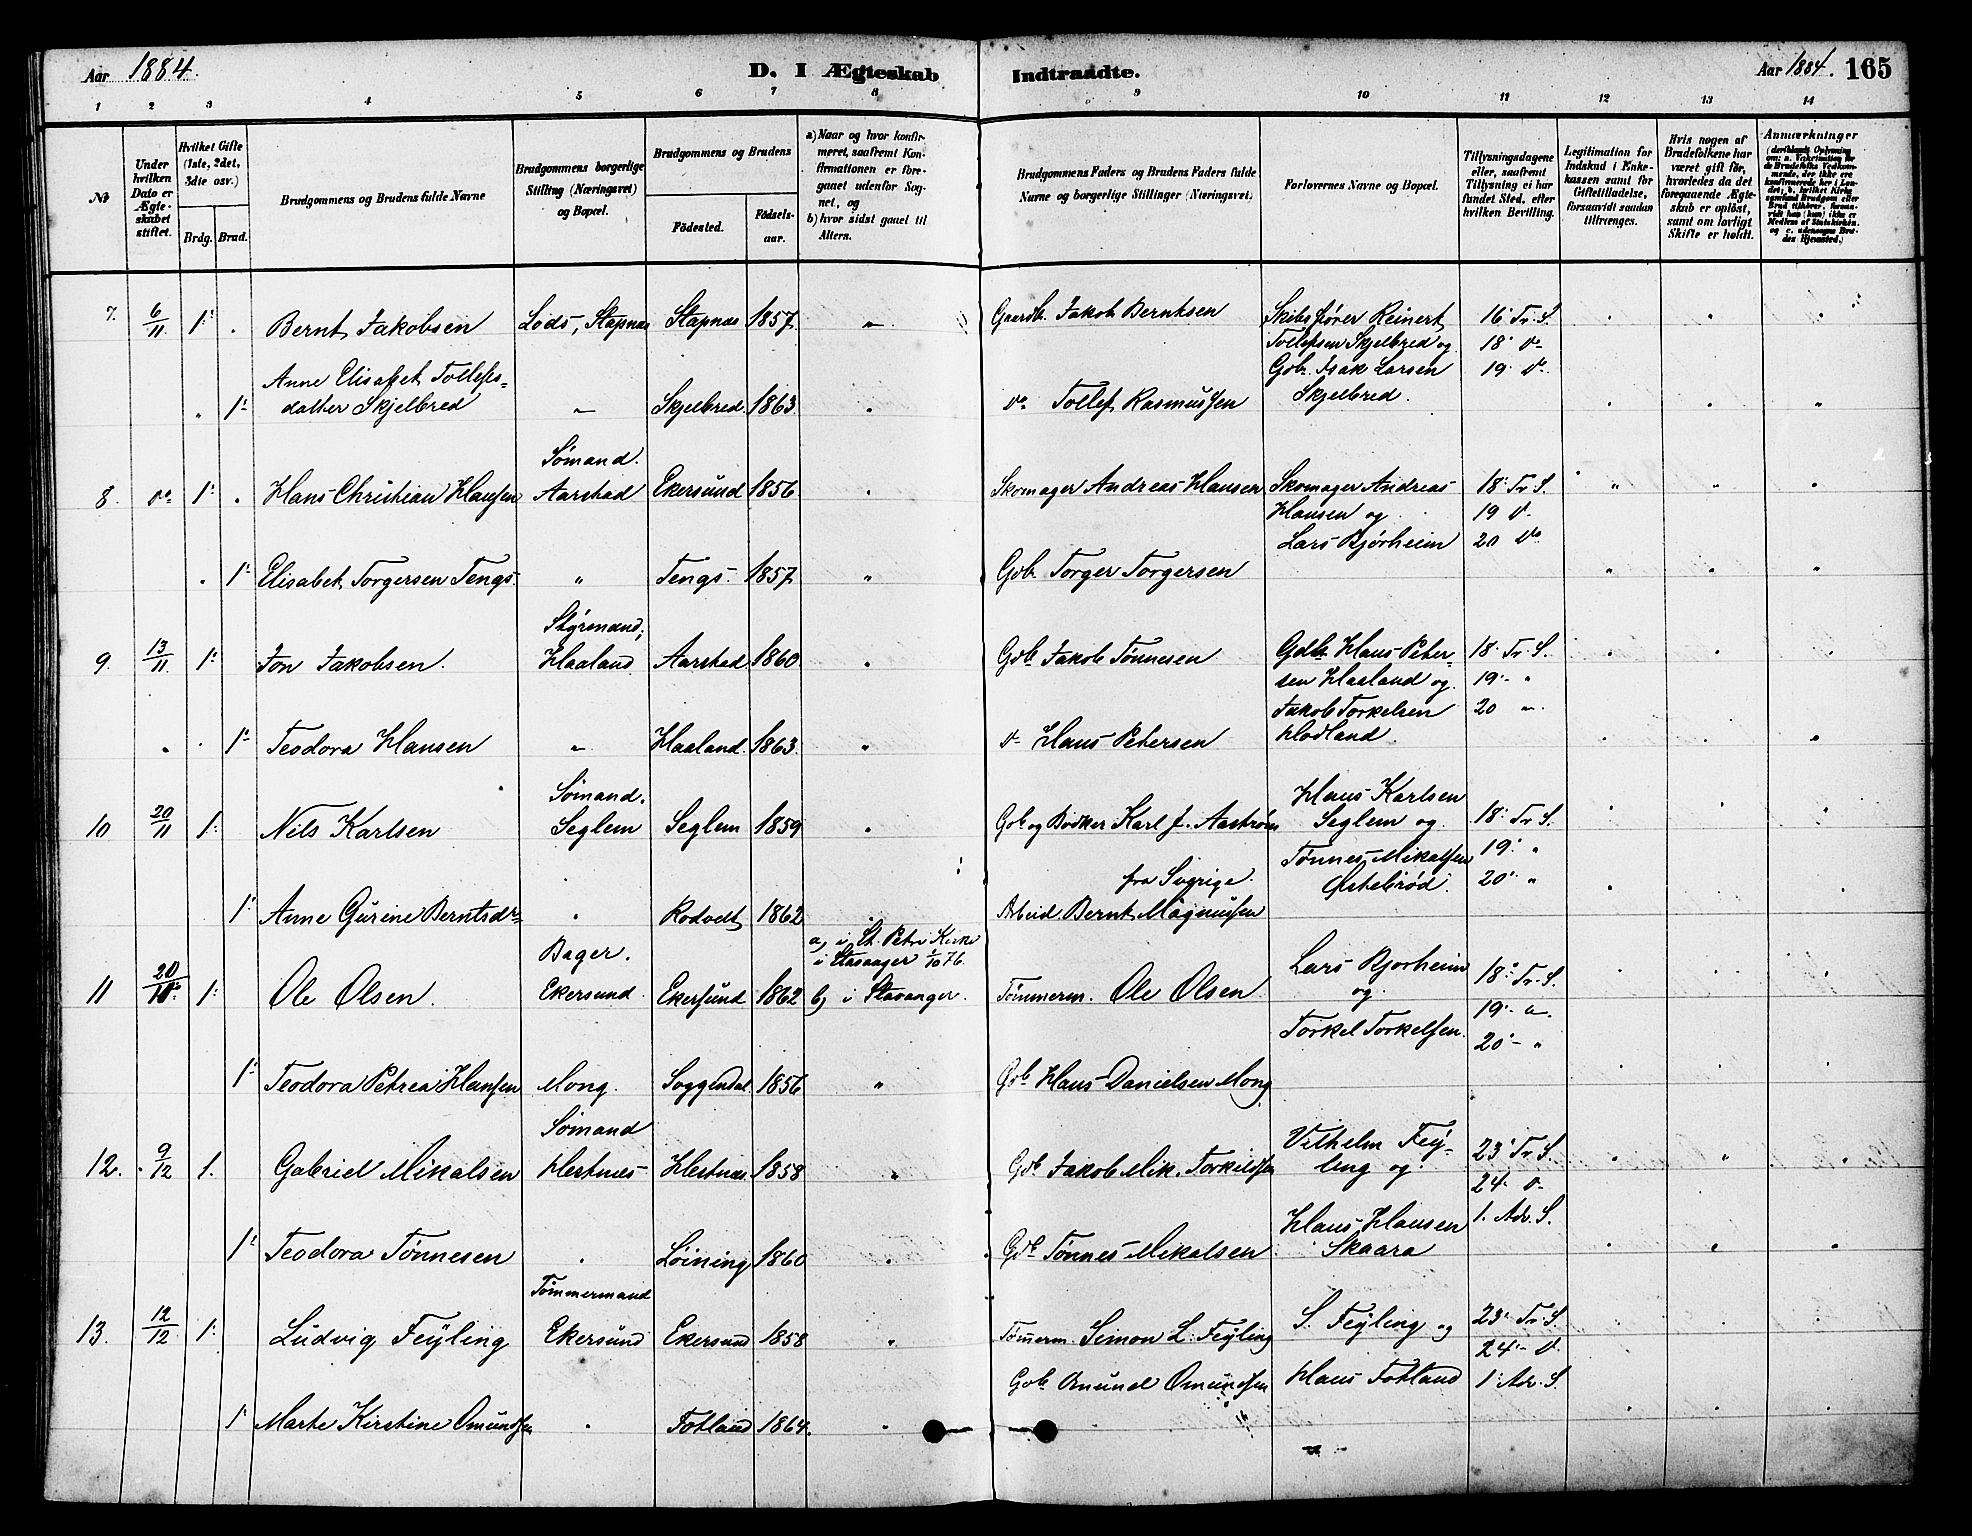 Aar 1884.
D. I Ægteskab Indtraadte.
Aar 1884. 165
1 2 3 4 5 6 7 8 9 10 11 12 13 14
№
Under hvilken Dato er Ægteskabet stiftet.
Hvilket Gifte (1ste, 2det, 3die osv.)
Brdg. Brud.
Brudgommens og Brudens fulde Navne
Brudgommens borgerlige Stilling (Næringsvei) og Bopæl.
Brudgommens og Brudens
Födested.
Födsels-aar.
a) Naar og hvor konfirmeret, saafremt Konfirmationen er foregaaet udenfor Sognet, og
b) hvor sidst gaaet til Altern.
Brudgommens Faders og Brudens Faders fulde Navne og borgerlige Stillinger (Næringsvei)
Forlovernes Navne og Bopæl.
Tillysningsdagene eller, saafremt Tillysning ei har fundet Sted, efter hvilken Bevilling.
Legitimation for Indskud i Enkekassen samt for Giftetilladelse, forsaavidt saadan tiltrænges.
Hvis nogen af Brudefolkene har været gift før, hvorledes da det foregaaende Ægteskab er opløst, samt om lovligt Skifte er holdt.
Anmærkninger
7. 6/11 1: Bernt Jakobsen Lods, Stapnes Stapnes 1857 Gaardb. Jakob Berntsen Skibsfører Reinert 16' Tr. S.
Tollefsen Skjelbred og 18' do
Gdb. Isak Larsen 19. do
Skjelbred.
Anne Elisabet Tollefs-
datter Skjelbred
1: " Skjelbred. 1863 " do Tollef Rasmussen
Sømand.
8. do 1: Hans Christian Hansen Aarstad Ekersund 1856 " Skomager Andreas Hansen Skomager Andreas 18' Tr. S.
Hansen og 19 do
Lars Bjørheim 20 do
1: Elisabet Torgersen Tengs " Tengs. 1857 " Gdb. Torger Torgersen
Styrmand,
9. 13/11 1: Jon Jakobsen. Haaland Aarstad 1860 " Gdb. Jakob Tønnesen Gdb. Hans Peter- 18' Tr. S.
sen Haaland og 19 "
Jakob Torkelsen 20 "
Hodland
1: Teodora Hansen " Haaland. 1863. " do Hans Petersen
Sømand.
10 20/11 1: Nils Karlsen Seglem Seglem 1859 " Gdb og Bødker Karl J. Aastrøm
fra Sverige.
Hans Karlsen
Seglem og 18' Tr. S.
Tønnes Mikalsen 19' "
Østebrød. 20' "
1: Anne Gurine Berntsdr. " Rodvelt 1862 Arbeid Bernt Magnussen
Bager.
a, i St. Petri Kirke
i Stavanger 1/10 76.
11 20/11 1: Ole Olsen. Ekersund Ekersund 1862 b, i Stavanger. Tømmerm. Ole Olsen
Lars Bjorheim 18' Tr. S.
og 19 "
Torkel Torkelsen. 20' "
1: Teodora Petrea Hansen Mong. Soggendal 1856 " Gdb Hans Danielsen Mong
Sømand
12. 9/12 1. Gabriel Mikalsen Hestnes Hestnes 1858 " Gdb Jakob Mik. Torkildsen
Vilhelm Fey- 23' Tr. S.
ling og 24. do
Hans Hansen 1. Adv. S.
Skaara
1: Teodora Tønnesen " Løining 1860 " Gdb Tønnes Mikalsen
Tømmermand
13. 12/12 1: Ludvig Feyling Ekersund Ekersund 1858 " Tømerm. Simon L. Feyling
S. Feyling og 23' Tr. S.
24' do
Hans Fotland 1' Adv. S.
Gdb. Omund Omundsen
1: Marte Kirstine Omundsen " Fotland 1864. "